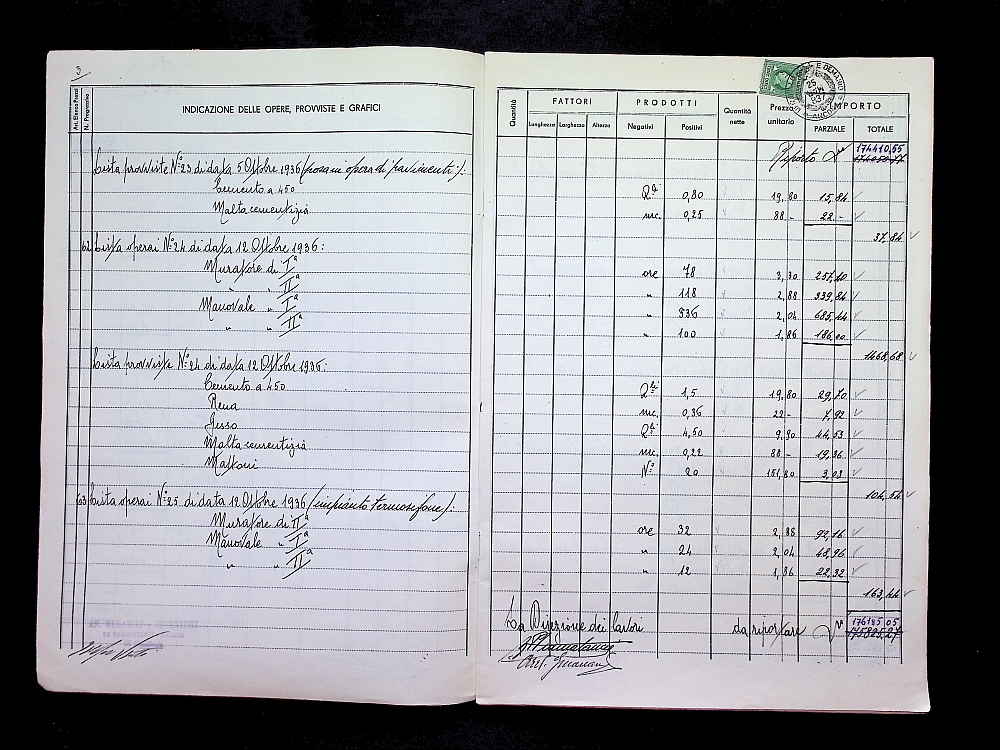 3
Art. Elenco Prezzi
N. Progressivo
INDICAZIONE DELLE OPERE, PROVVISTE E GRAFICI
Quantità
FATTORI
Lunghezza Larghezza Altezza
PRODOTTI
Negativi Positivi
Quantità nette
Prezzo unitario
IMPORTO
PARZIALE TOTALE
Riporto 174410,55
Lista provviste N.º 23 di data 5 Ottobre 1936 (posa in opera di pavimenti):
Cemento a 450 Q.li 0,80 19,80 15,84
Malta cementizia mc. 0,25 88 - 22 -
37,84
62 Lista operai N.º 24 di data 12 Ottobre 1936:
Muratore di Iª ore 78 3,30 257,40
" " IIª " 118 2,88 339,84
Manovale " Iª " 336 2,04 685,44
" " IIª " 100 1,86 186,00
1468,68
Lista provviste N.º 24 di data 12 Ottobre 1936:
Cemento a 450 Q.li 1,5 19,80 29,70
Rena mc. 0,36 22 - 7,92
Gesso Q.li 4,50 9,90 44,53
Malta cementizia mc. 0,22 88 - 19,36
Mattoni N.º 20 151,80 3,03
104,54
63 Lista operai N.º 25 di data 12 Ottobre 1936 (impianto termosifone):
Muratore di IIª ore 32 2,88 92,16
Manovale " Iª " 24 2,04 48,96
" " IIª " 12 1,86 22,32
163,44
La Direzione dei lavori
da riportare 176185,05
175825,27